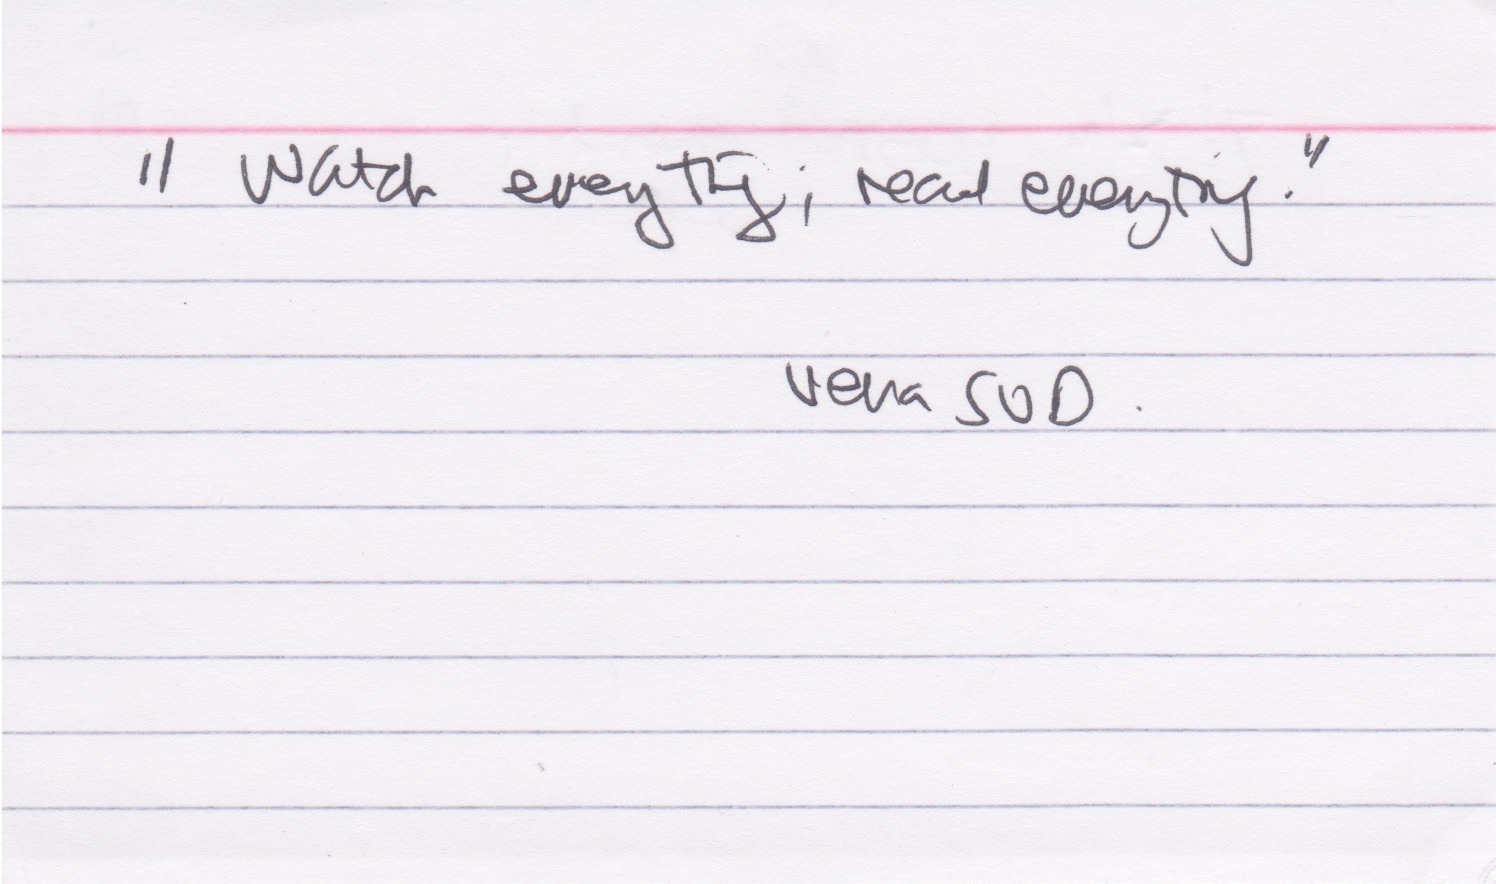 "Watch everything; read everything."
Veena SUD.